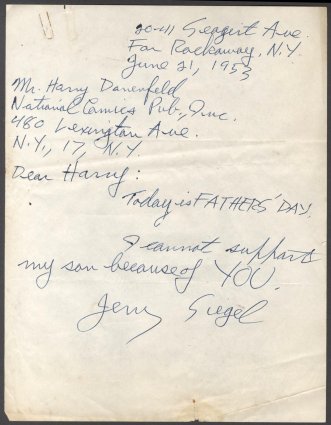 20-41 Seagirt Ave.
Far Rockaway, N.Y.
June 21, 1953
Mr. Harry Donenfeld
National Comics Pub., Inc.
480 Lexington Ave.
N.Y., 17, N.Y.
Dear Harry:
Today is FATHERS' DAY.
I cannot support
my son because of YOU.
Jerry Siegel